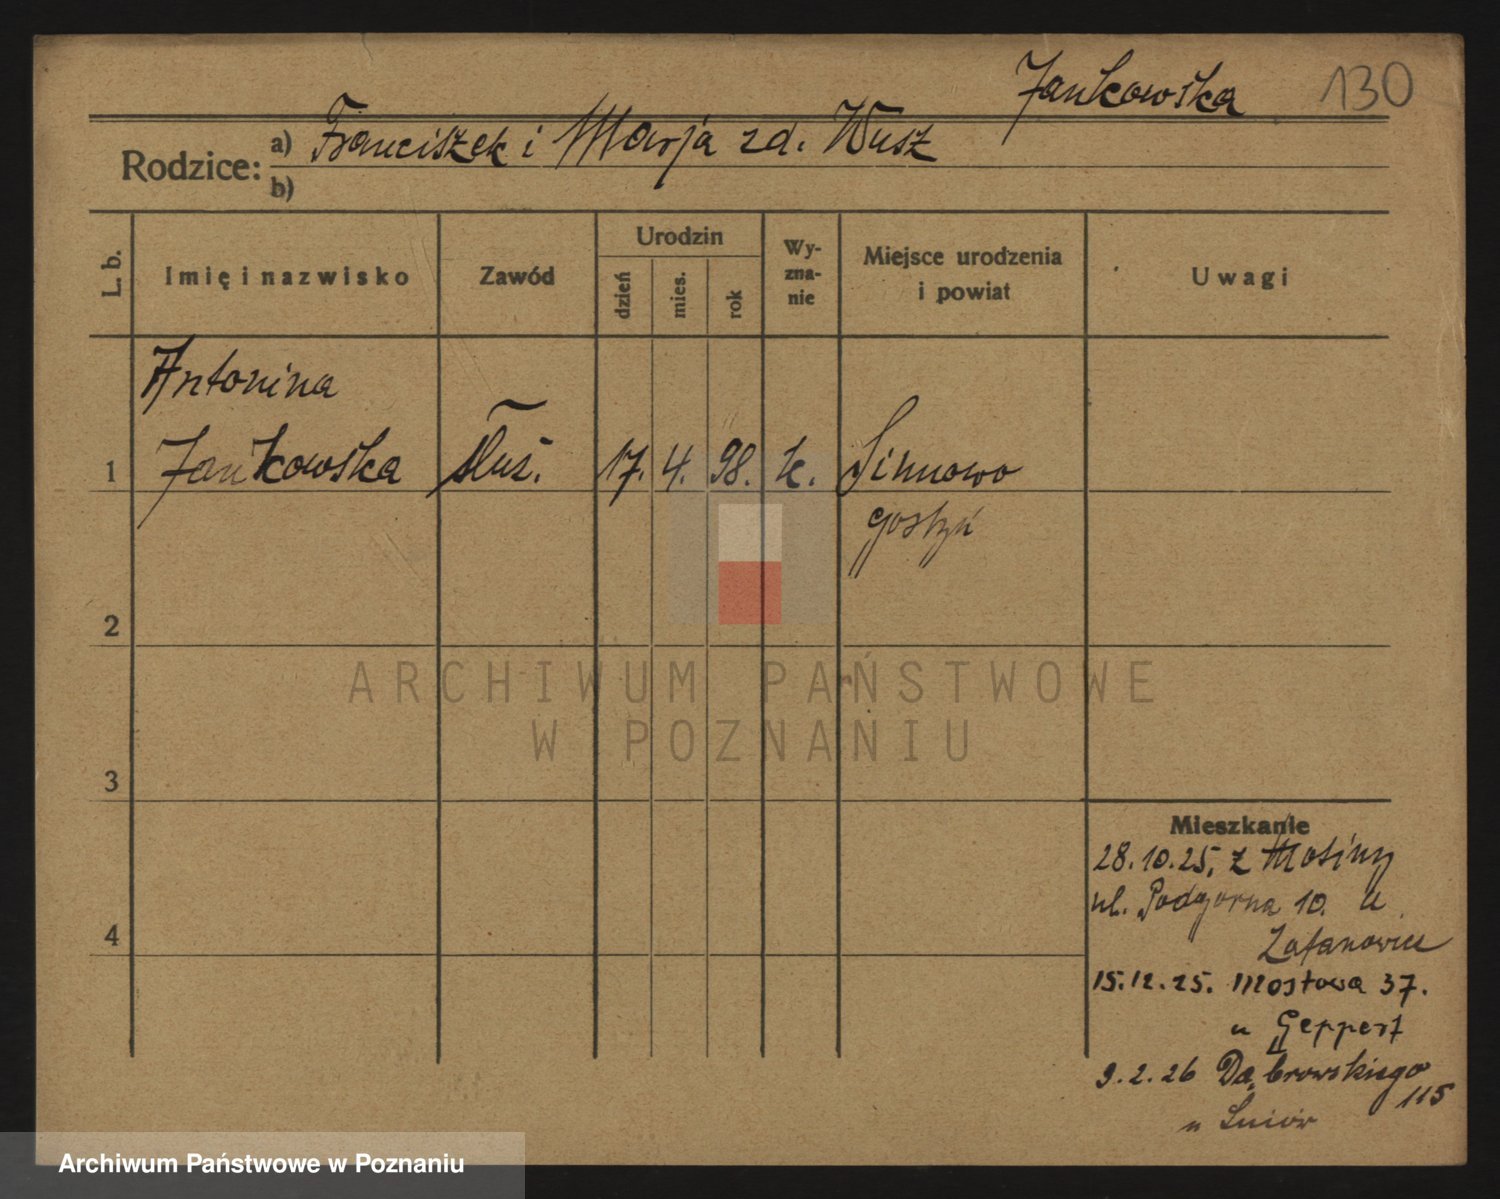 Jankowska 130
Rodzice: a) Franciszek i Marja zd. Wusz
b)
L. b. Imię i nazwisko Zawód Urodzin dzień mies. rok Wy-zna-nie Miejsce urodzenia i powiat Uwagi
Antonina
1 Jankowska służ. 17. 4. 98. k. Simowo
Gostyń
2
ARCHIWUM PAŃSTWOWE
W POZNANIU
3
Mieszkanie
28.10.25. z Mosiny
ul. Podgorna 10. u
4
15.12.25. Mostowa 37.
u Geppert
9.2.26 Dąbrowskiego
115
u
Archiwum Państwowe w Poznaniu